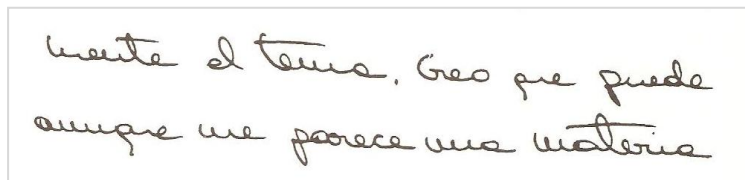 mente el tema. Creo que puede
aunque me parece una materia